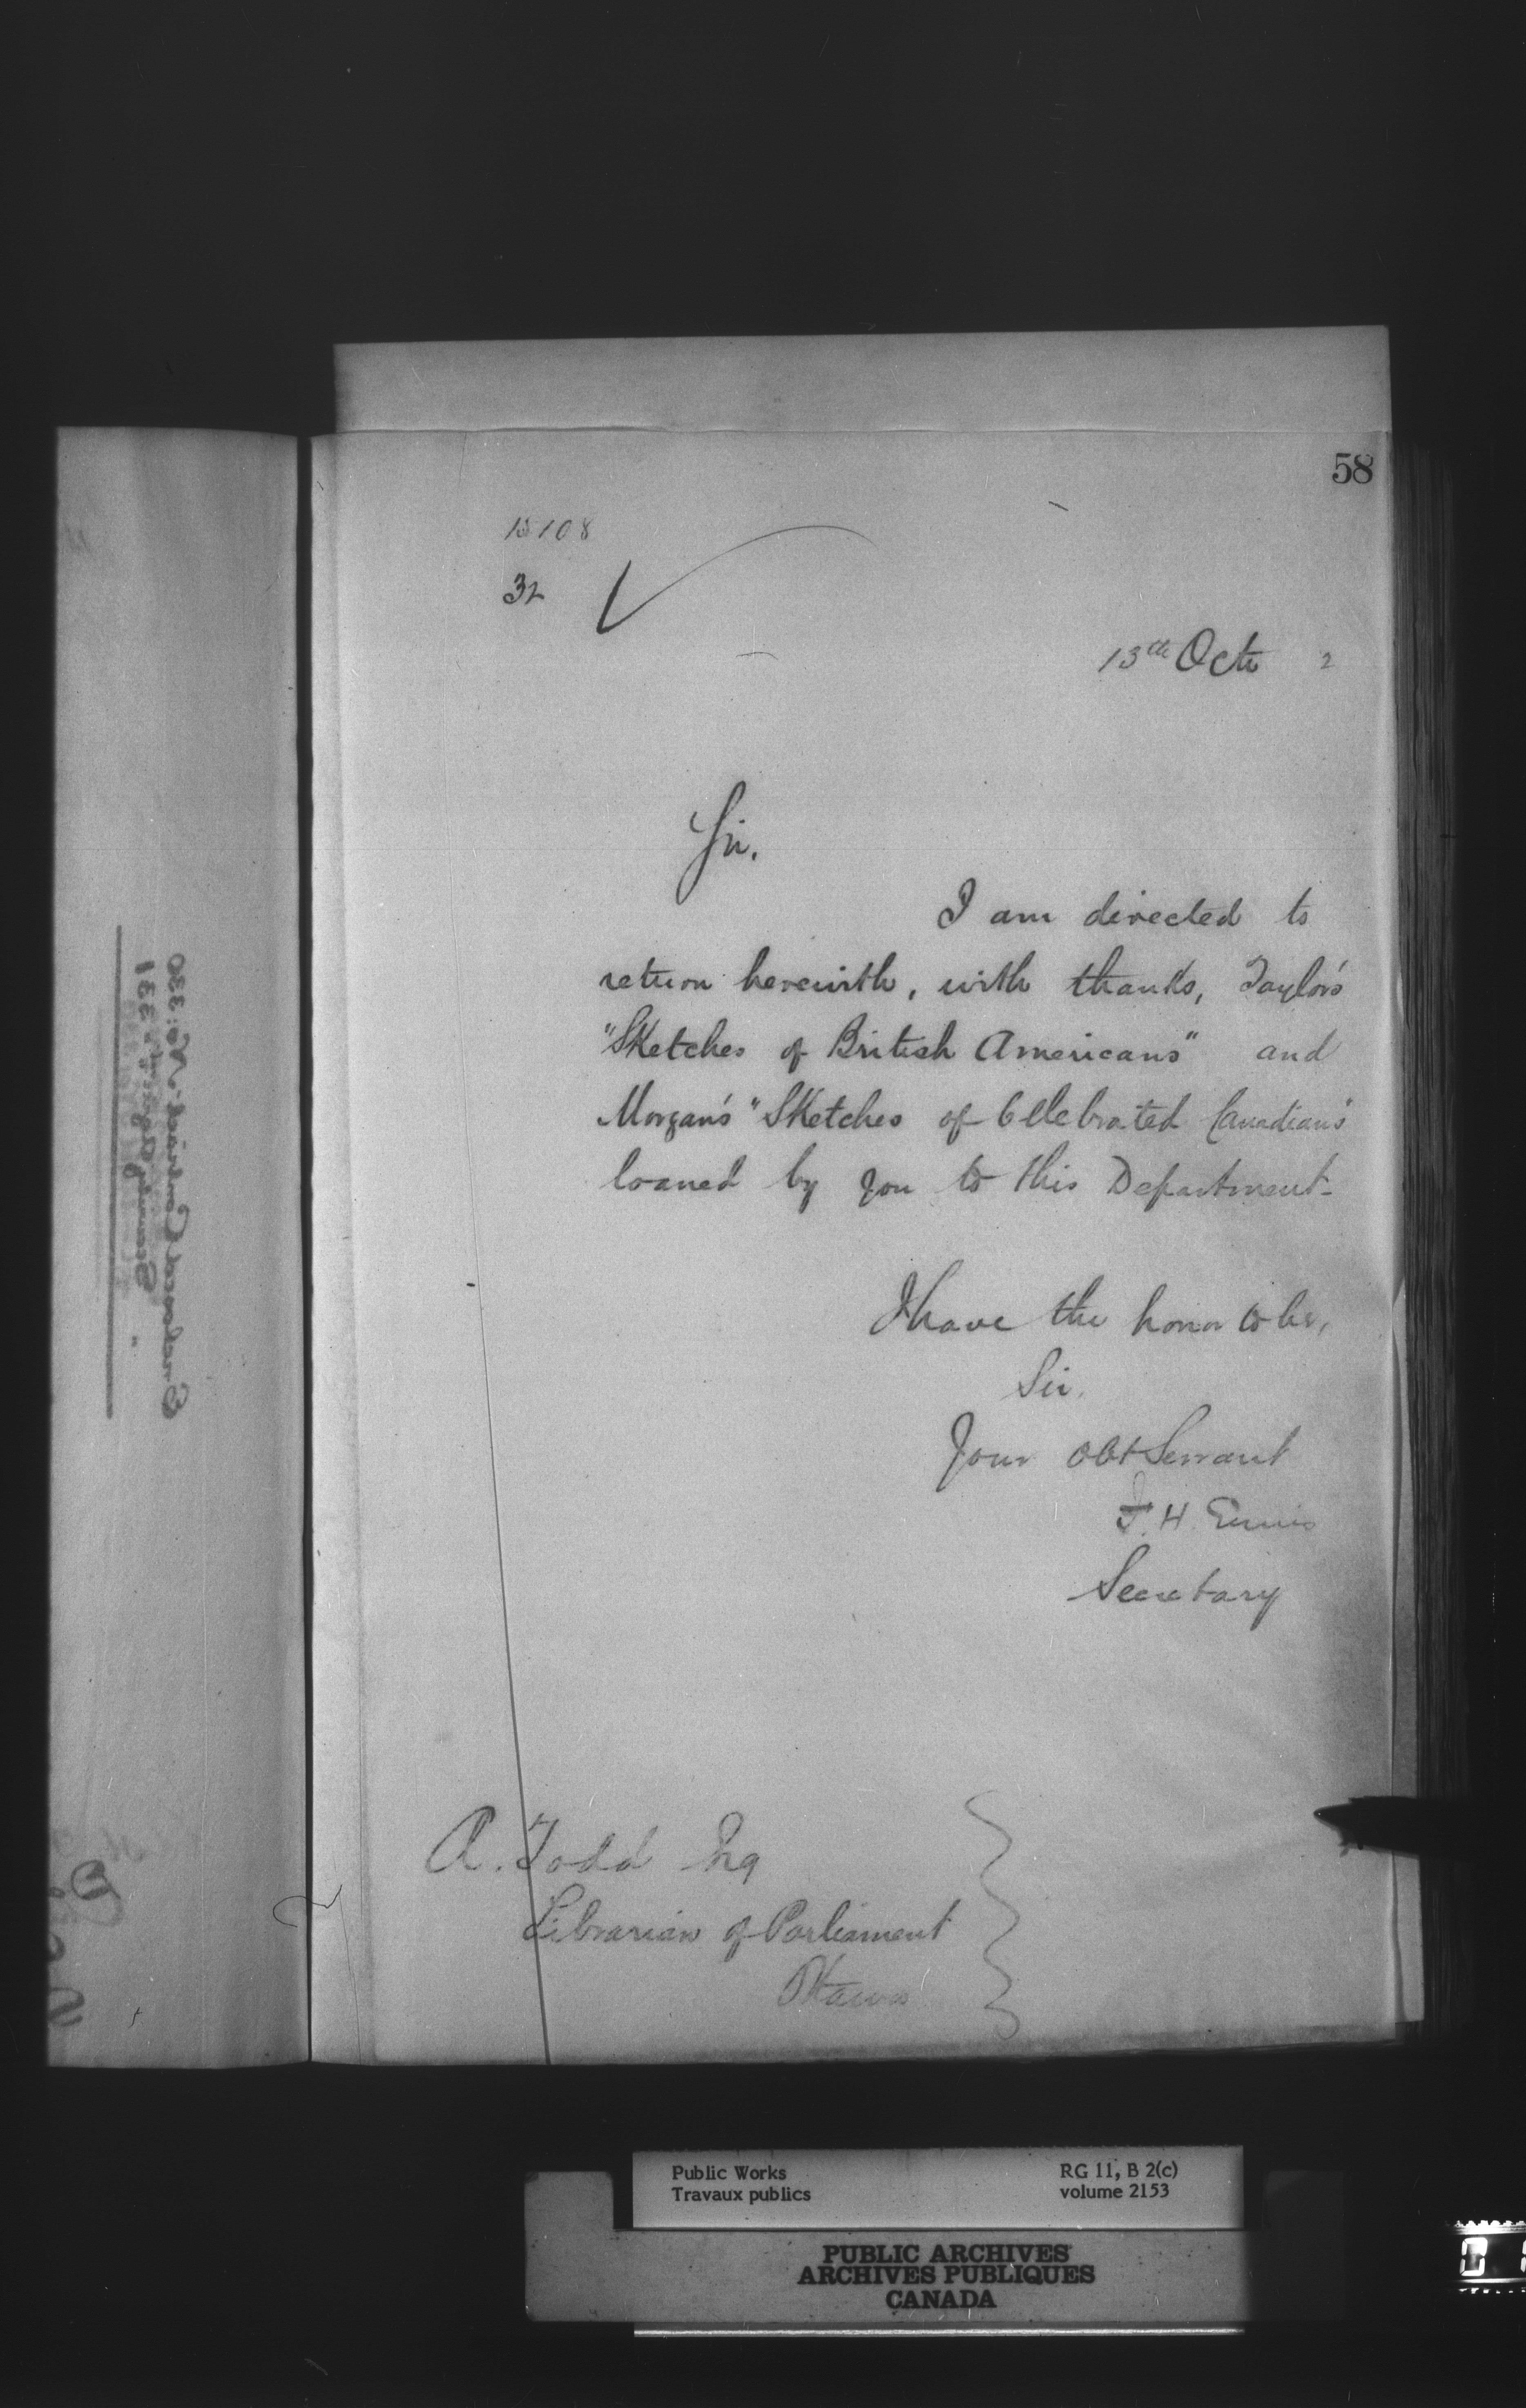 58
15108
32
13th Octr 2
Sir,
I am directed to
return herewith, with thanks, Taylor's
"Sketches of British Americans" and
Morgan's "Sketches of Celebrated Canadians"
loaned by you to this Department.
I have the honor to be,
Sir,
Your Obt Servant
F. H. Ennis
Secretary
A. Todd Esq
Librarian of Parliament
Ottawa
Public Works
Travaux publics
RG 11, B 2(c)
volume 2153
PUBLIC ARCHIVES
ARCHIVES PUBLIQUES
CANADA